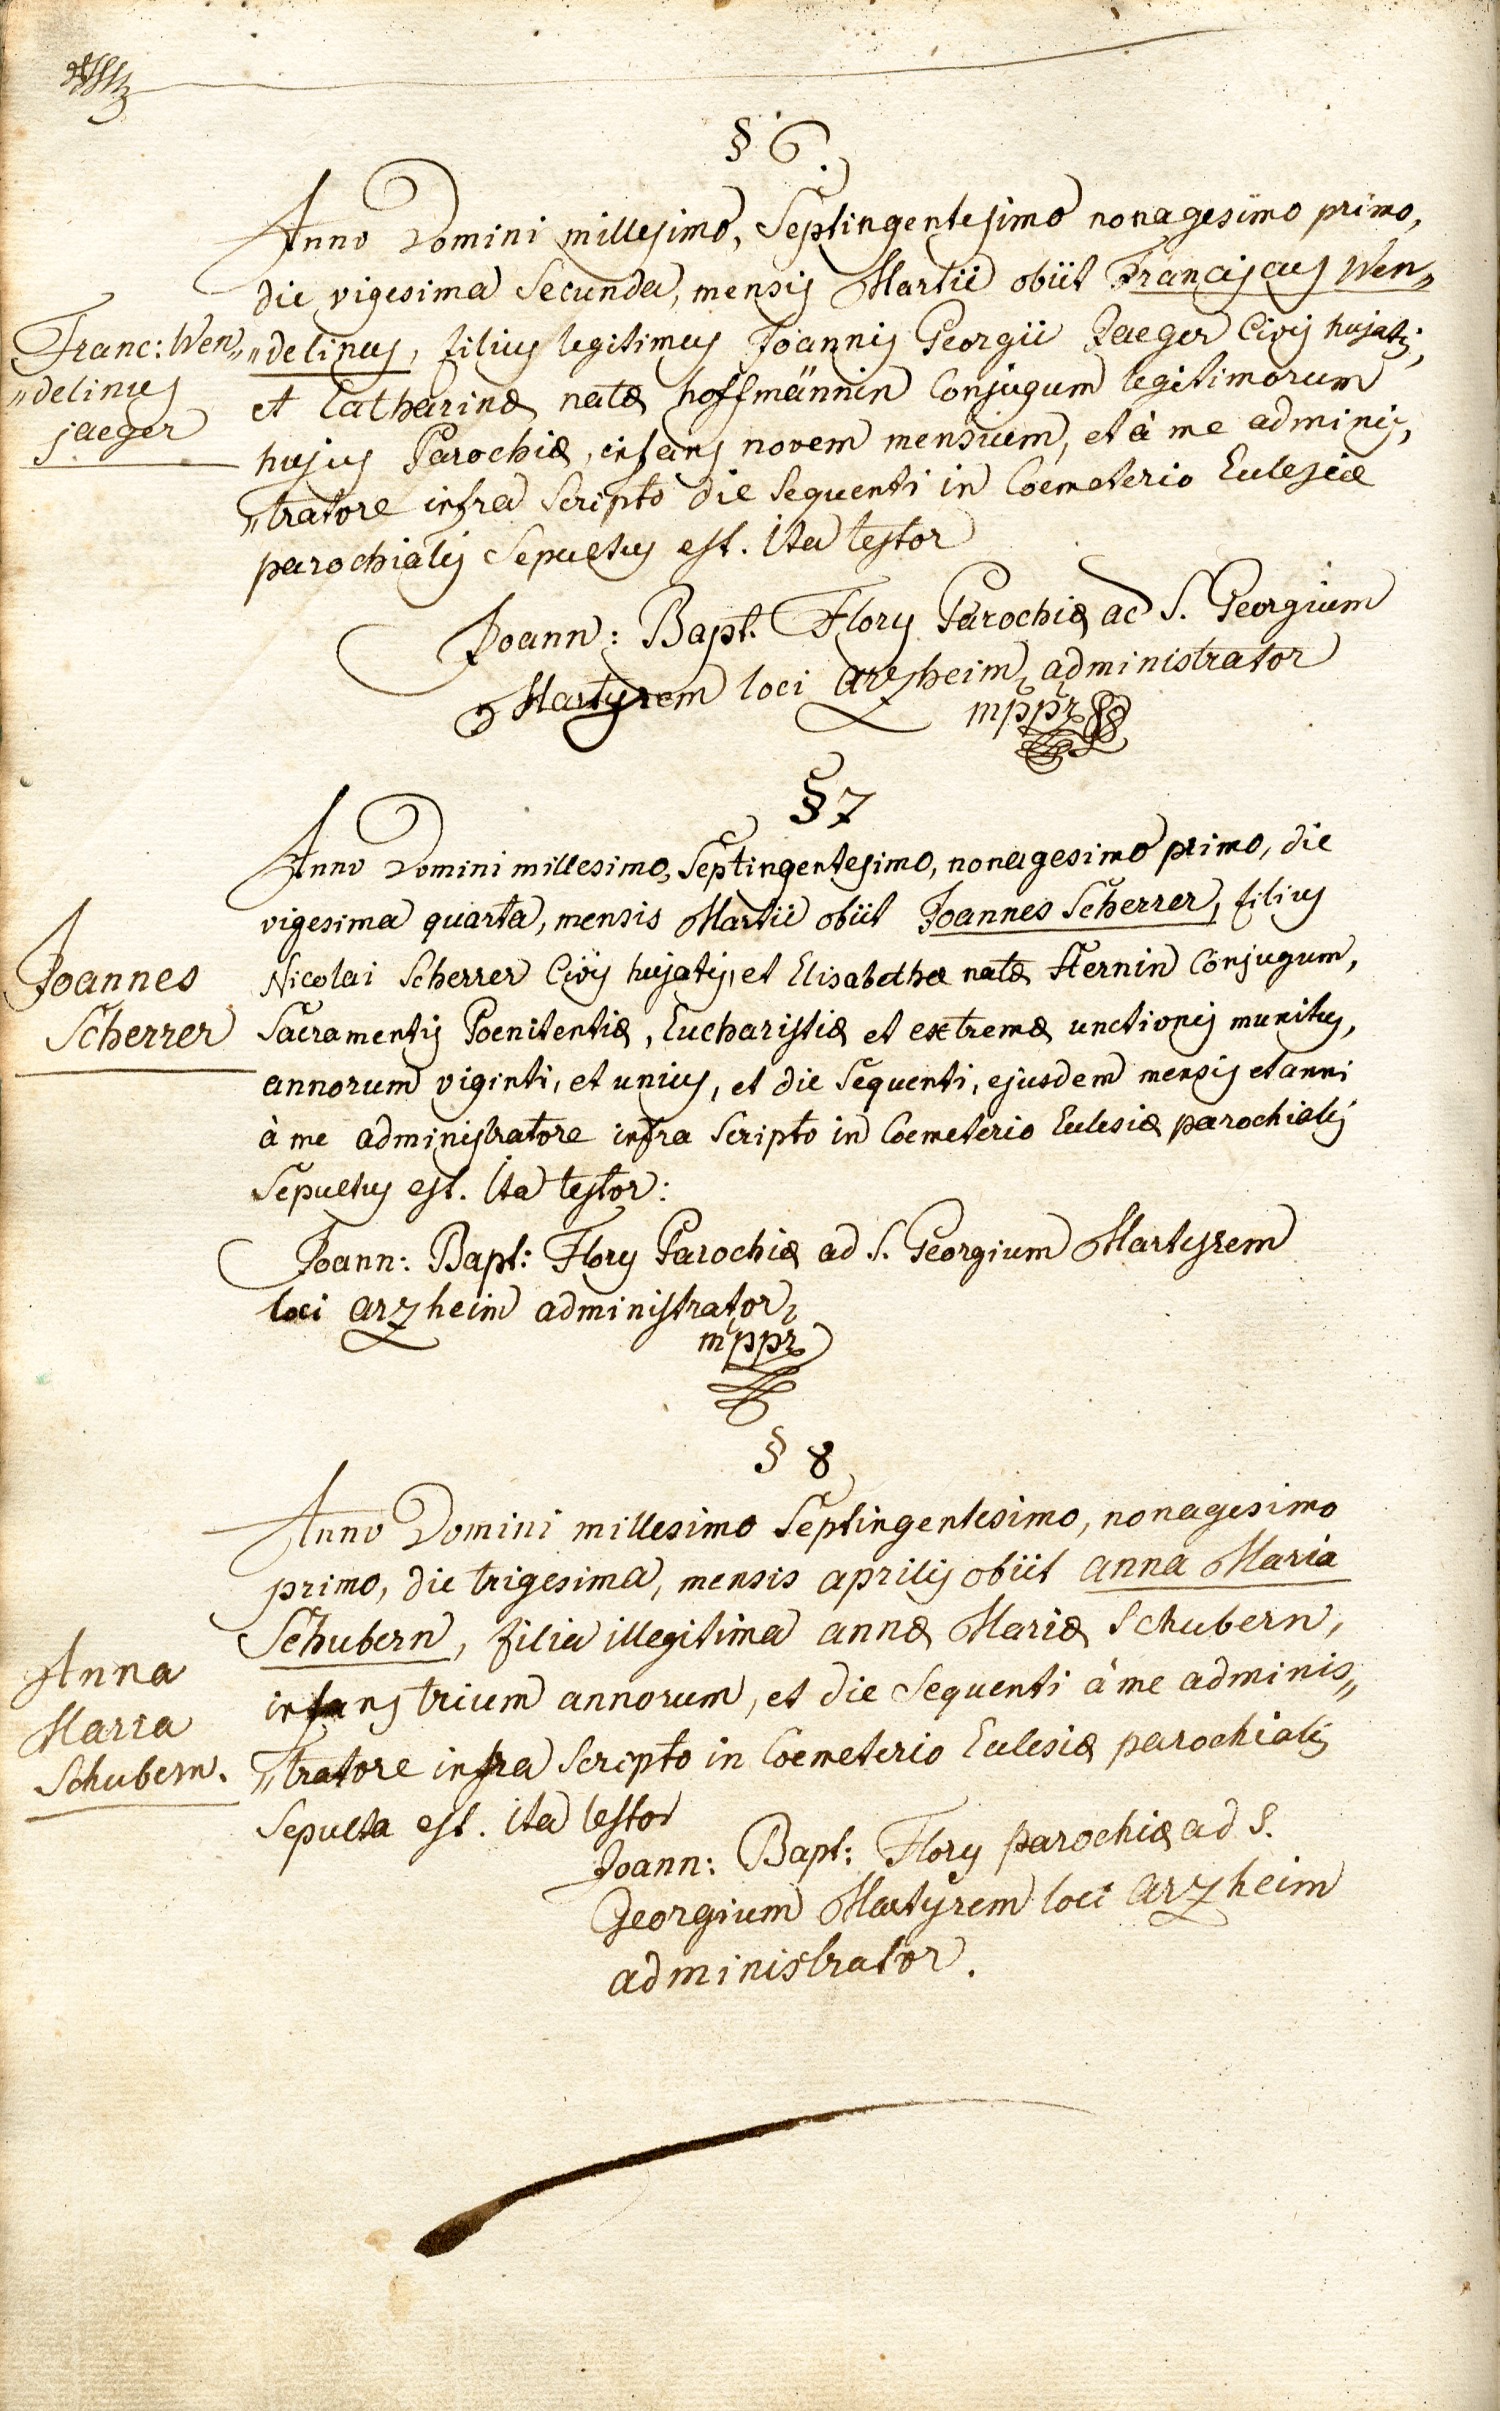 § 6.
Anno Domini millesimo, Septingentesimo nonagesimo primo,
die vigesima Secunda, mensis Martii obiit Franciscus Wen„
Franc: Wen„
„delinus
jaeger
„delinus, filius legitimus Joannis Georgii Jaeger Civis hujatis,
et Catharinæ natæ hoffmännin Conjugum legitimorum
hujus Parochiæ, infans novem mensium, et à me adminis„
„tratore infra Scripto die Sequenti in Coemeterio Ecclesiæ
parochialis Sepultus est. Ita testor
Joann: Bapt. Flory Parochiæ ad S. Georgium
Martyrem loci arzheim administrator
mppr
§ 7
Anno Domini millesimo, Septingentesimo, nonagesimo primo, die
vigesima quarta, mensis Martii obiit Joannes Scherrer, filius
Joannes
Scherrer
Nicolai Scherrer Civis hujatis, et Elisabethæ natæ Sternin Conjugum,
Sacramentis Poenitentiæ, Eucharistiæ et extremæ unctionis munitus,
annorum viginti, et unius, et die Sequenti, ejusdem mensis et anni
à me administratore infra Scripto in Coemeterio Ecclesiæ parochialis
Sepultus est. Ita testor:
Joann: Bapt: Flory Parochiæ ad S. Georgium Martyrem
loci arzheim administrator
mppr
§ 8
Anno Domini millesimo Septingentesimo, nonagesimo
primo, die trigesima, mensis aprilis obiit anna Maria
Anna
Maria
Schubern.
Schubern, filia illegitima annæ Mariæ Schubern,
infans trium annorum, et die Sequenti à me adminis„
„tratore infra Scripto in Coemeterio Ecclesiæ parochialis
Sepulta est. ita testor
Joann: Bapt: Flory parochiæ ad S.
Georgium Martyrem loci arzheim
administrator.